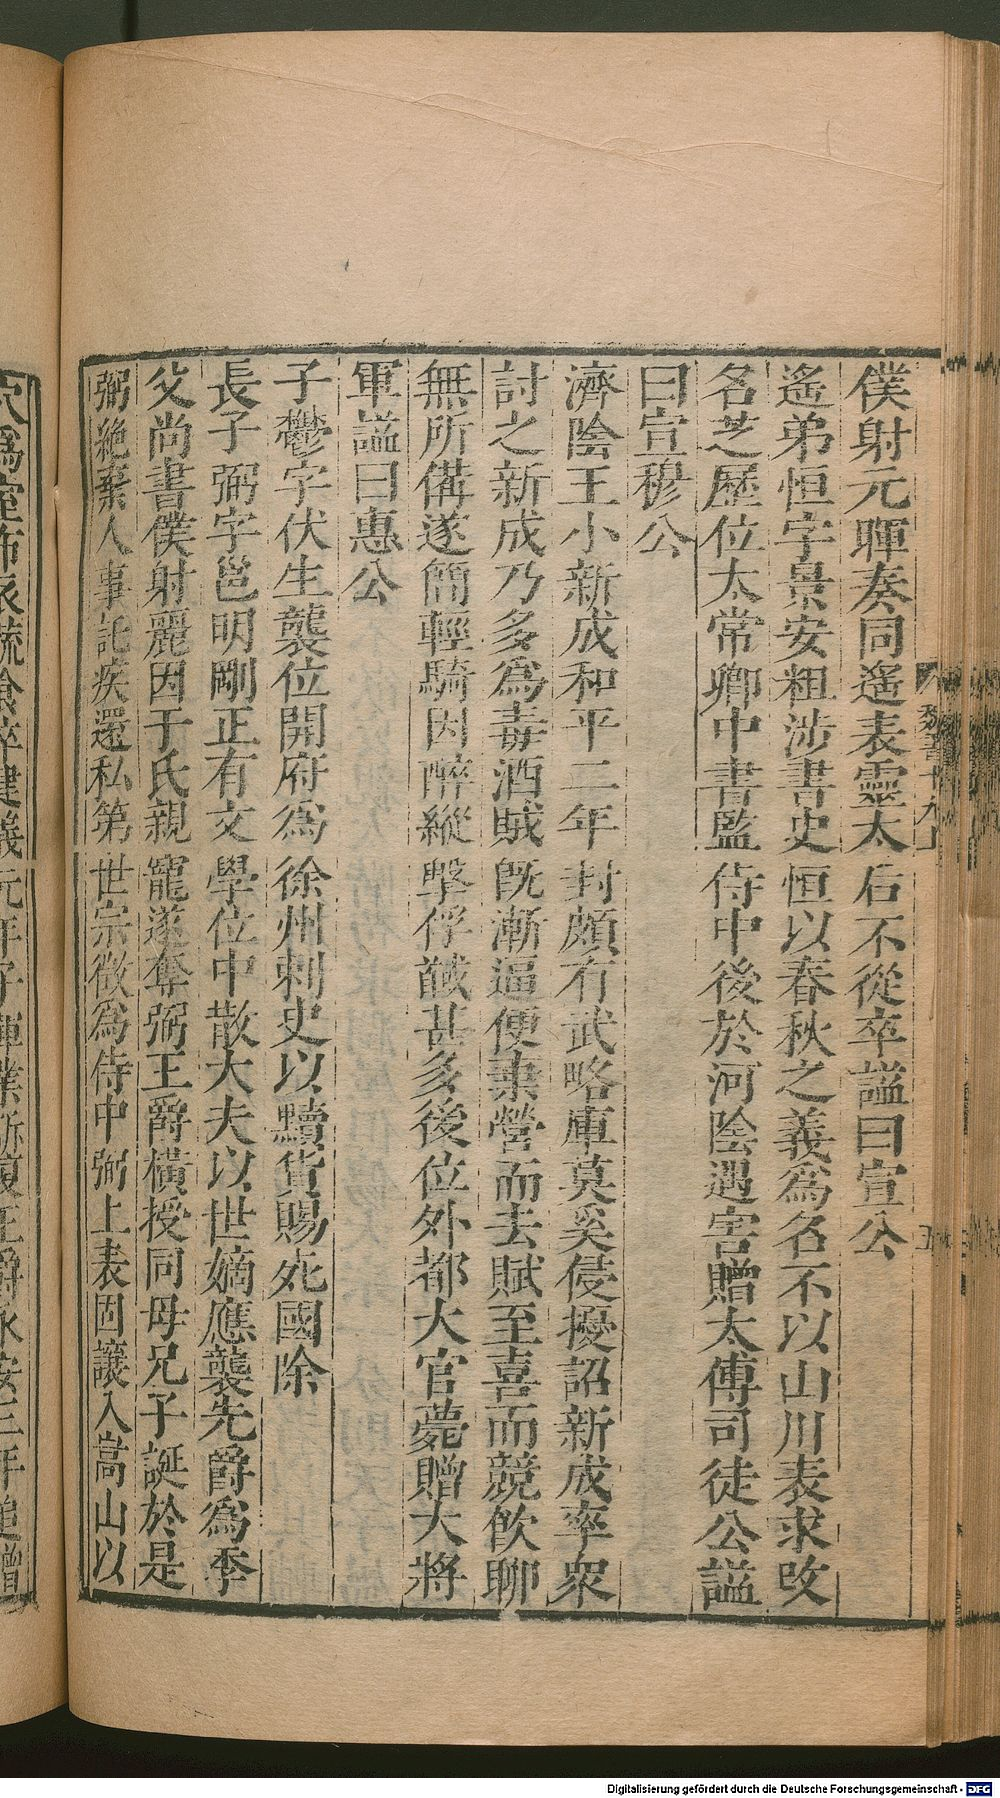 魏書十九上
五
僕射元暉奏同遙表靈太后不從卒謚曰宣公
遙弟恒字景安粗涉書史恒以春秋之義爲名不以山川表求改
名芝歷位太常卿中書監侍中後於河陰遇害贈太傅司徒公謚
曰宣穆公
濟陰王小新成和平二年封頗有武略庫莫奚侵擾詔新成率衆
討之新成乃多爲毒酒賊旣漸逼便棄營而去賊至喜而競飲聊
無所備遂簡輕騎因醉縱擊俘馘甚多後位外都大官薨贈大將
軍謚曰惠公
子鬱字伏生襲位開府爲徐州刺史以黷貨賜死國除
長子弼字邕明剛正有文學位中散大夫以世嫡應襲先爵爲季
父尚書僕射麗因于氏親寵遂奪弼王爵橫授同母兄子誕於是
弼絕棄人事託疾還私第世宗徵爲侍中弼上表固讓入嵩山以
穴爲室布衣蔬食卒建義元年子暉業訴復王爵永安三年追贈
Digitalisierung gefördert durch die Deutsche Forschungsgemeinschaft - DFG